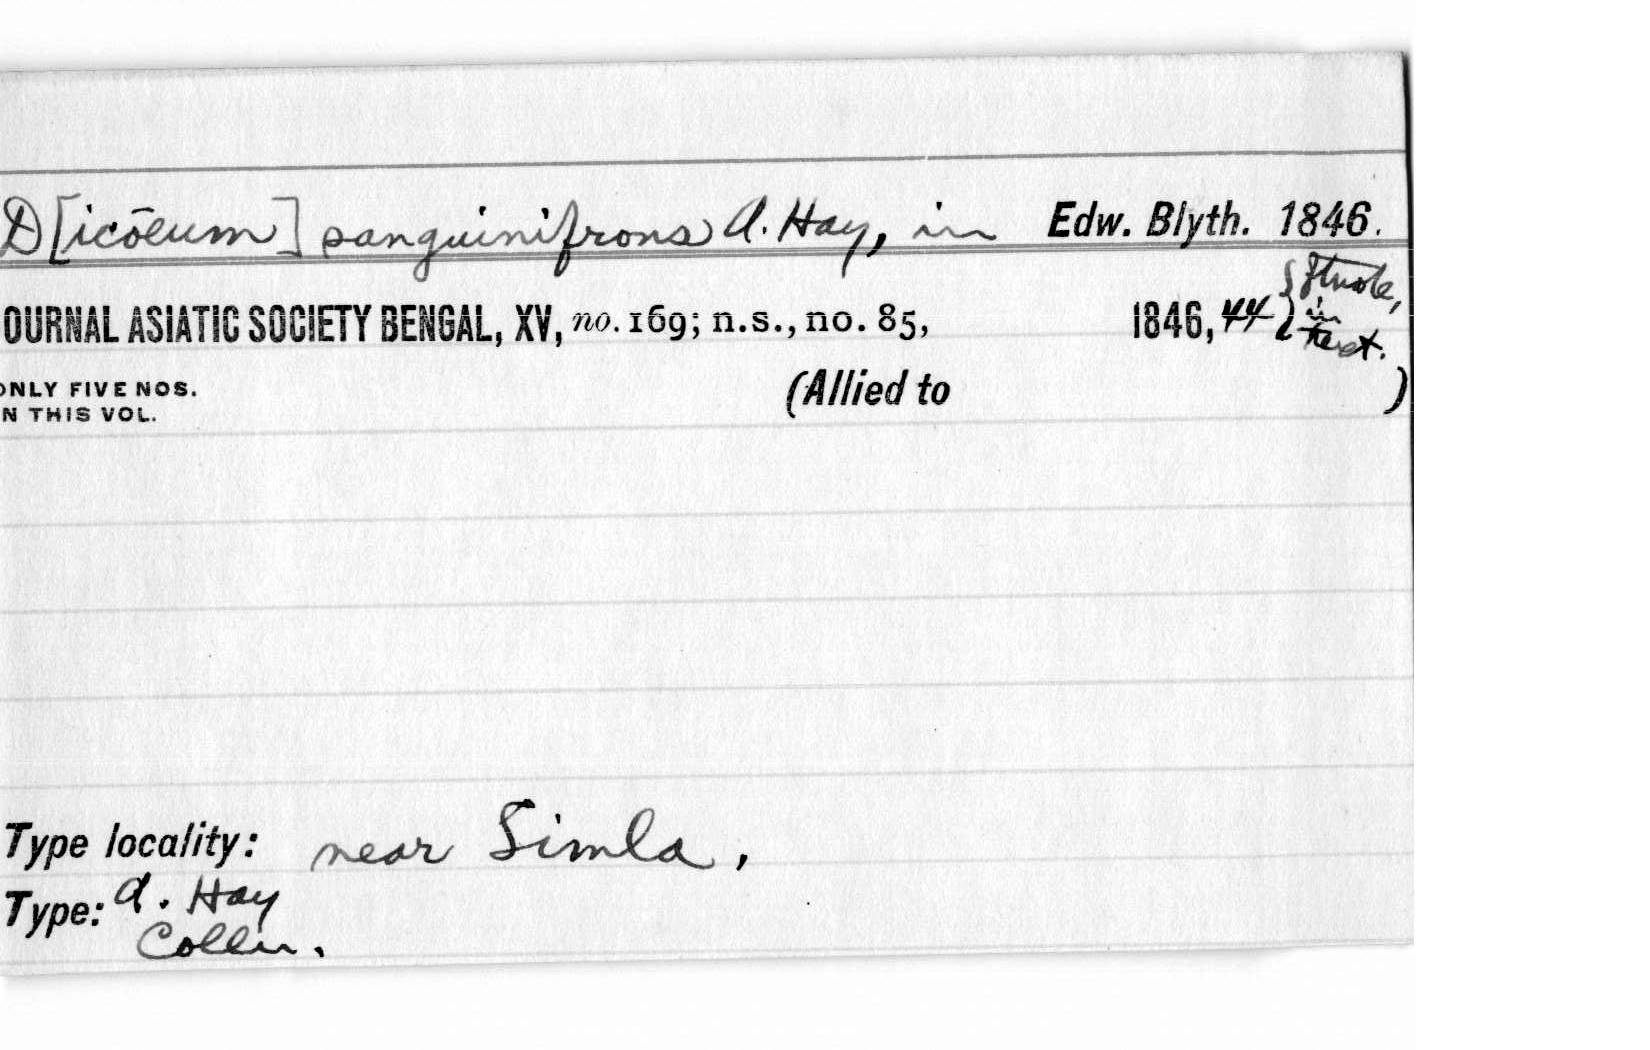 D[icæum] sanguinifrons A. Hay, in Edw. Blyth. 1846.
OURNAL ASIATIC SOCIETY BENGAL, XV, no. 169; n.s., no. 85, 1846, 44 { ftnote,
in
text.
ONLY FIVE NOS. (Allied to )
N THIS VOL.
Type locality: near Simla,
Type: A. Hay
Colln.